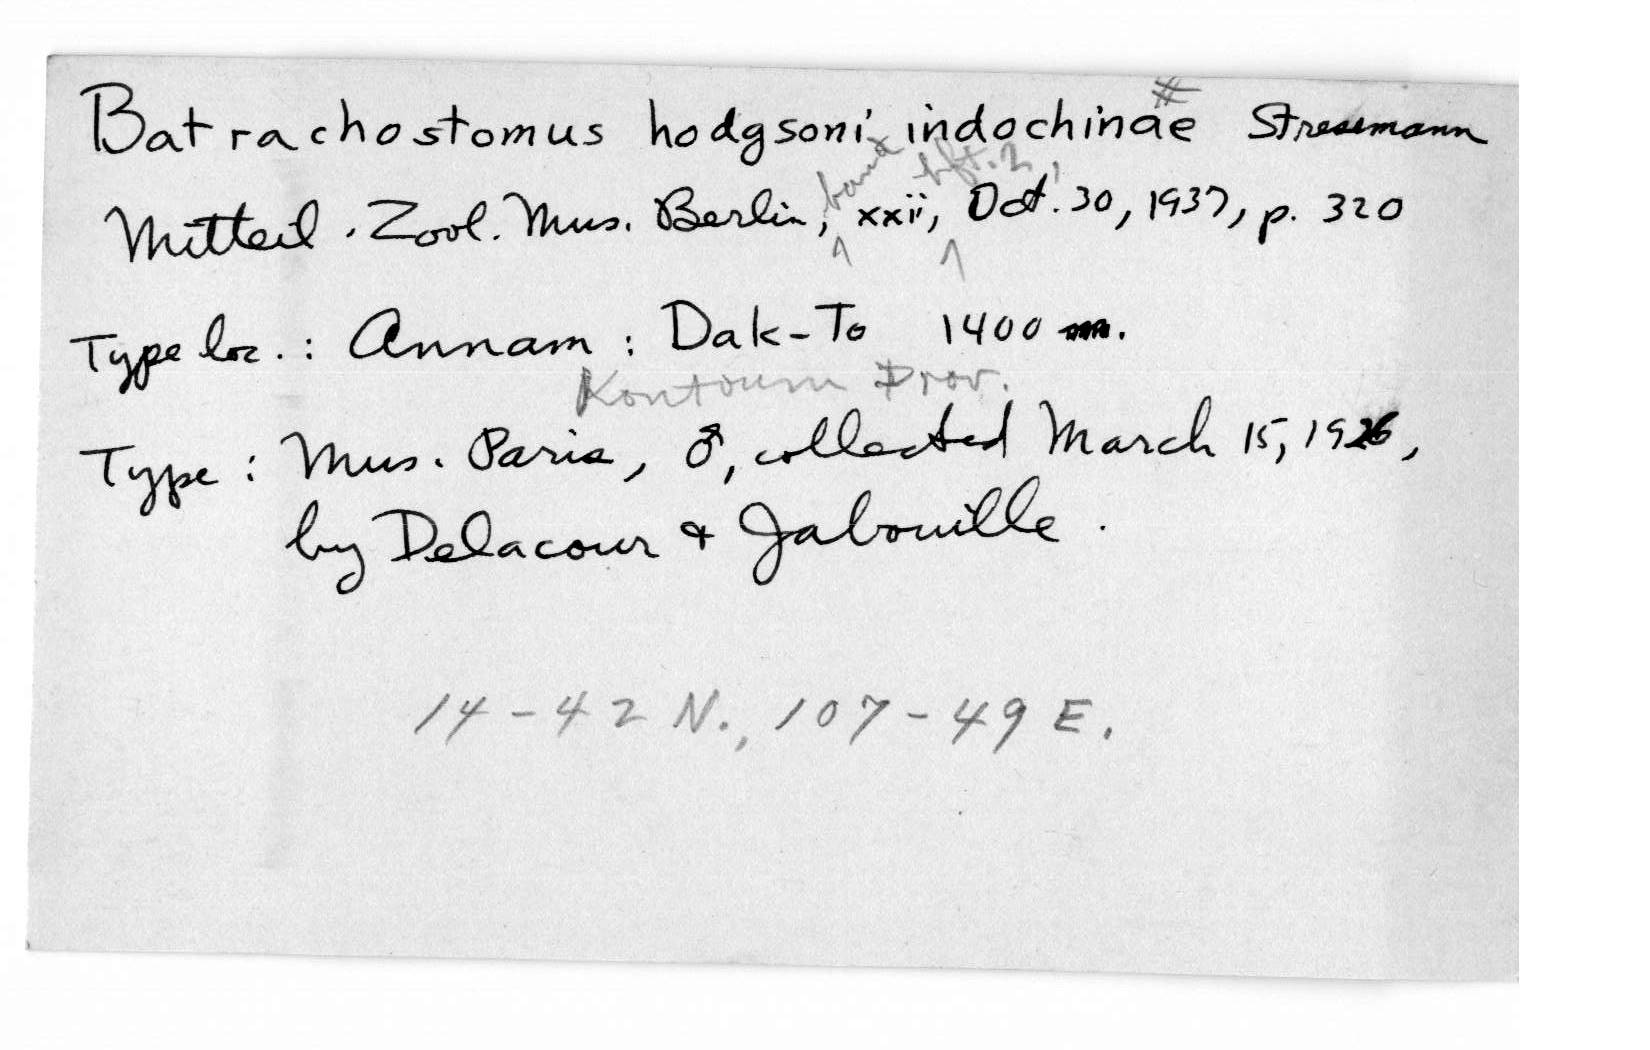 #
Batrachostomus hodgsoni indochinae Stresemann
band hft. 2,
Mitteil. Zool. Mus. Berlin, xxii, Oct. 30, 1937, p. 320
Type loc.: Annam: Dak-To 1400 m.
Kontoum Prov.
Type: Mus. Paris, ♂, collected March 15, 1926,
by Delacour & Jabouille.
14-42 N., 107-49 E.